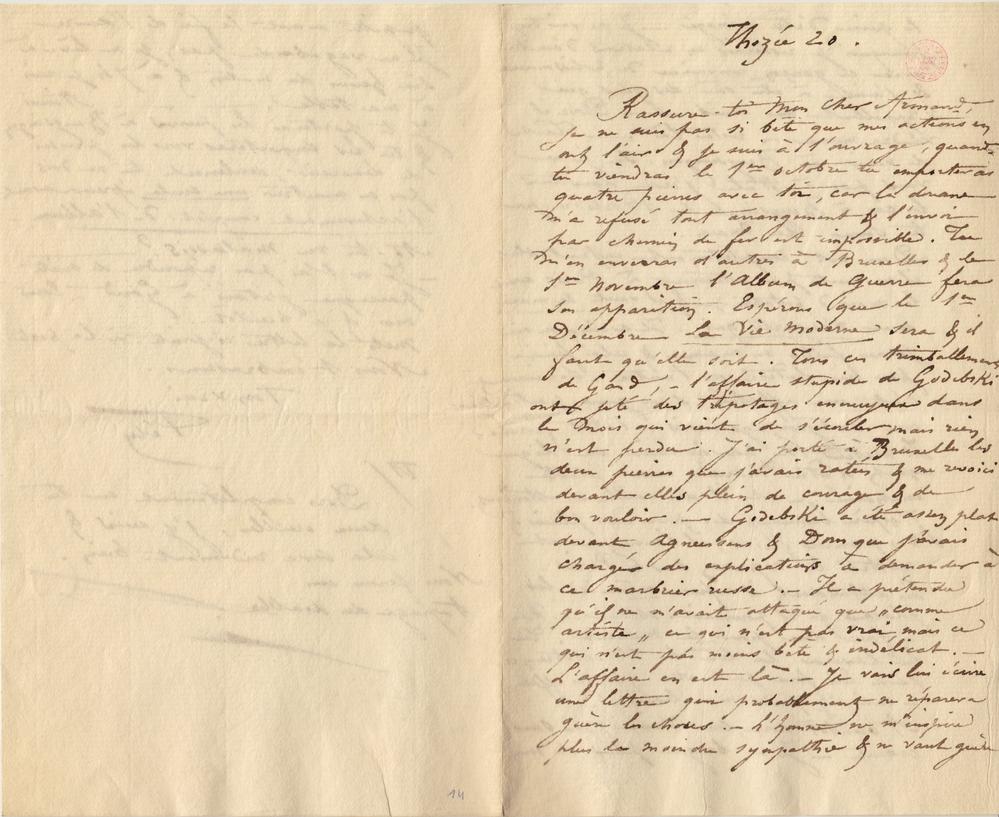 Thozée 20.
Rassure-toi mon cher Armand,
je ne suis pas si bête que mes actions en
ont l'air & je suis à l'ouvrage, quand
tu viendras le 1er octobre tu emporteras
quatre pierres avec toi, car la douane
m'a refusé tout arrangement & l'envoi
par chemin de fer est impossible. Tu
m'en enverras d'autres à Bruxelles & le
1er Novembre l'Album de Guerre fera
son apparition. Espérons que le 1er
Décembre la Vie Moderne sera & il
faut qu'elle soit. Tous ces trimballements
de Gand, – l'affaire stupide de Godebski
ont jeté des tripotages ennuyeux dans
le mois qui vient de s'écouler mais rien
n'est perdu. J'ai porté à Bruxelles les
deux pierres que j'avais ratées & me revoici
devant elles plein de courage & de
bon vouloir. – Godebski a été assez plat
devant Agneessens & Dom que j'avais
chargés des explications à demander à
ce marbrier russe. – Il a prétendu
qu'il ne m'avait attaqué que „comme
artiste„ ce qui n'est pas vrai mais ce
qui n'est pas moins bête & indélicat. –
L'affaire en est là. – Je vais lui écrire
une lettre qui probablement ne réparera
guère les choses. – L'homme ne m'inspire
plus la moindre sympathie & ne vaut guère
14